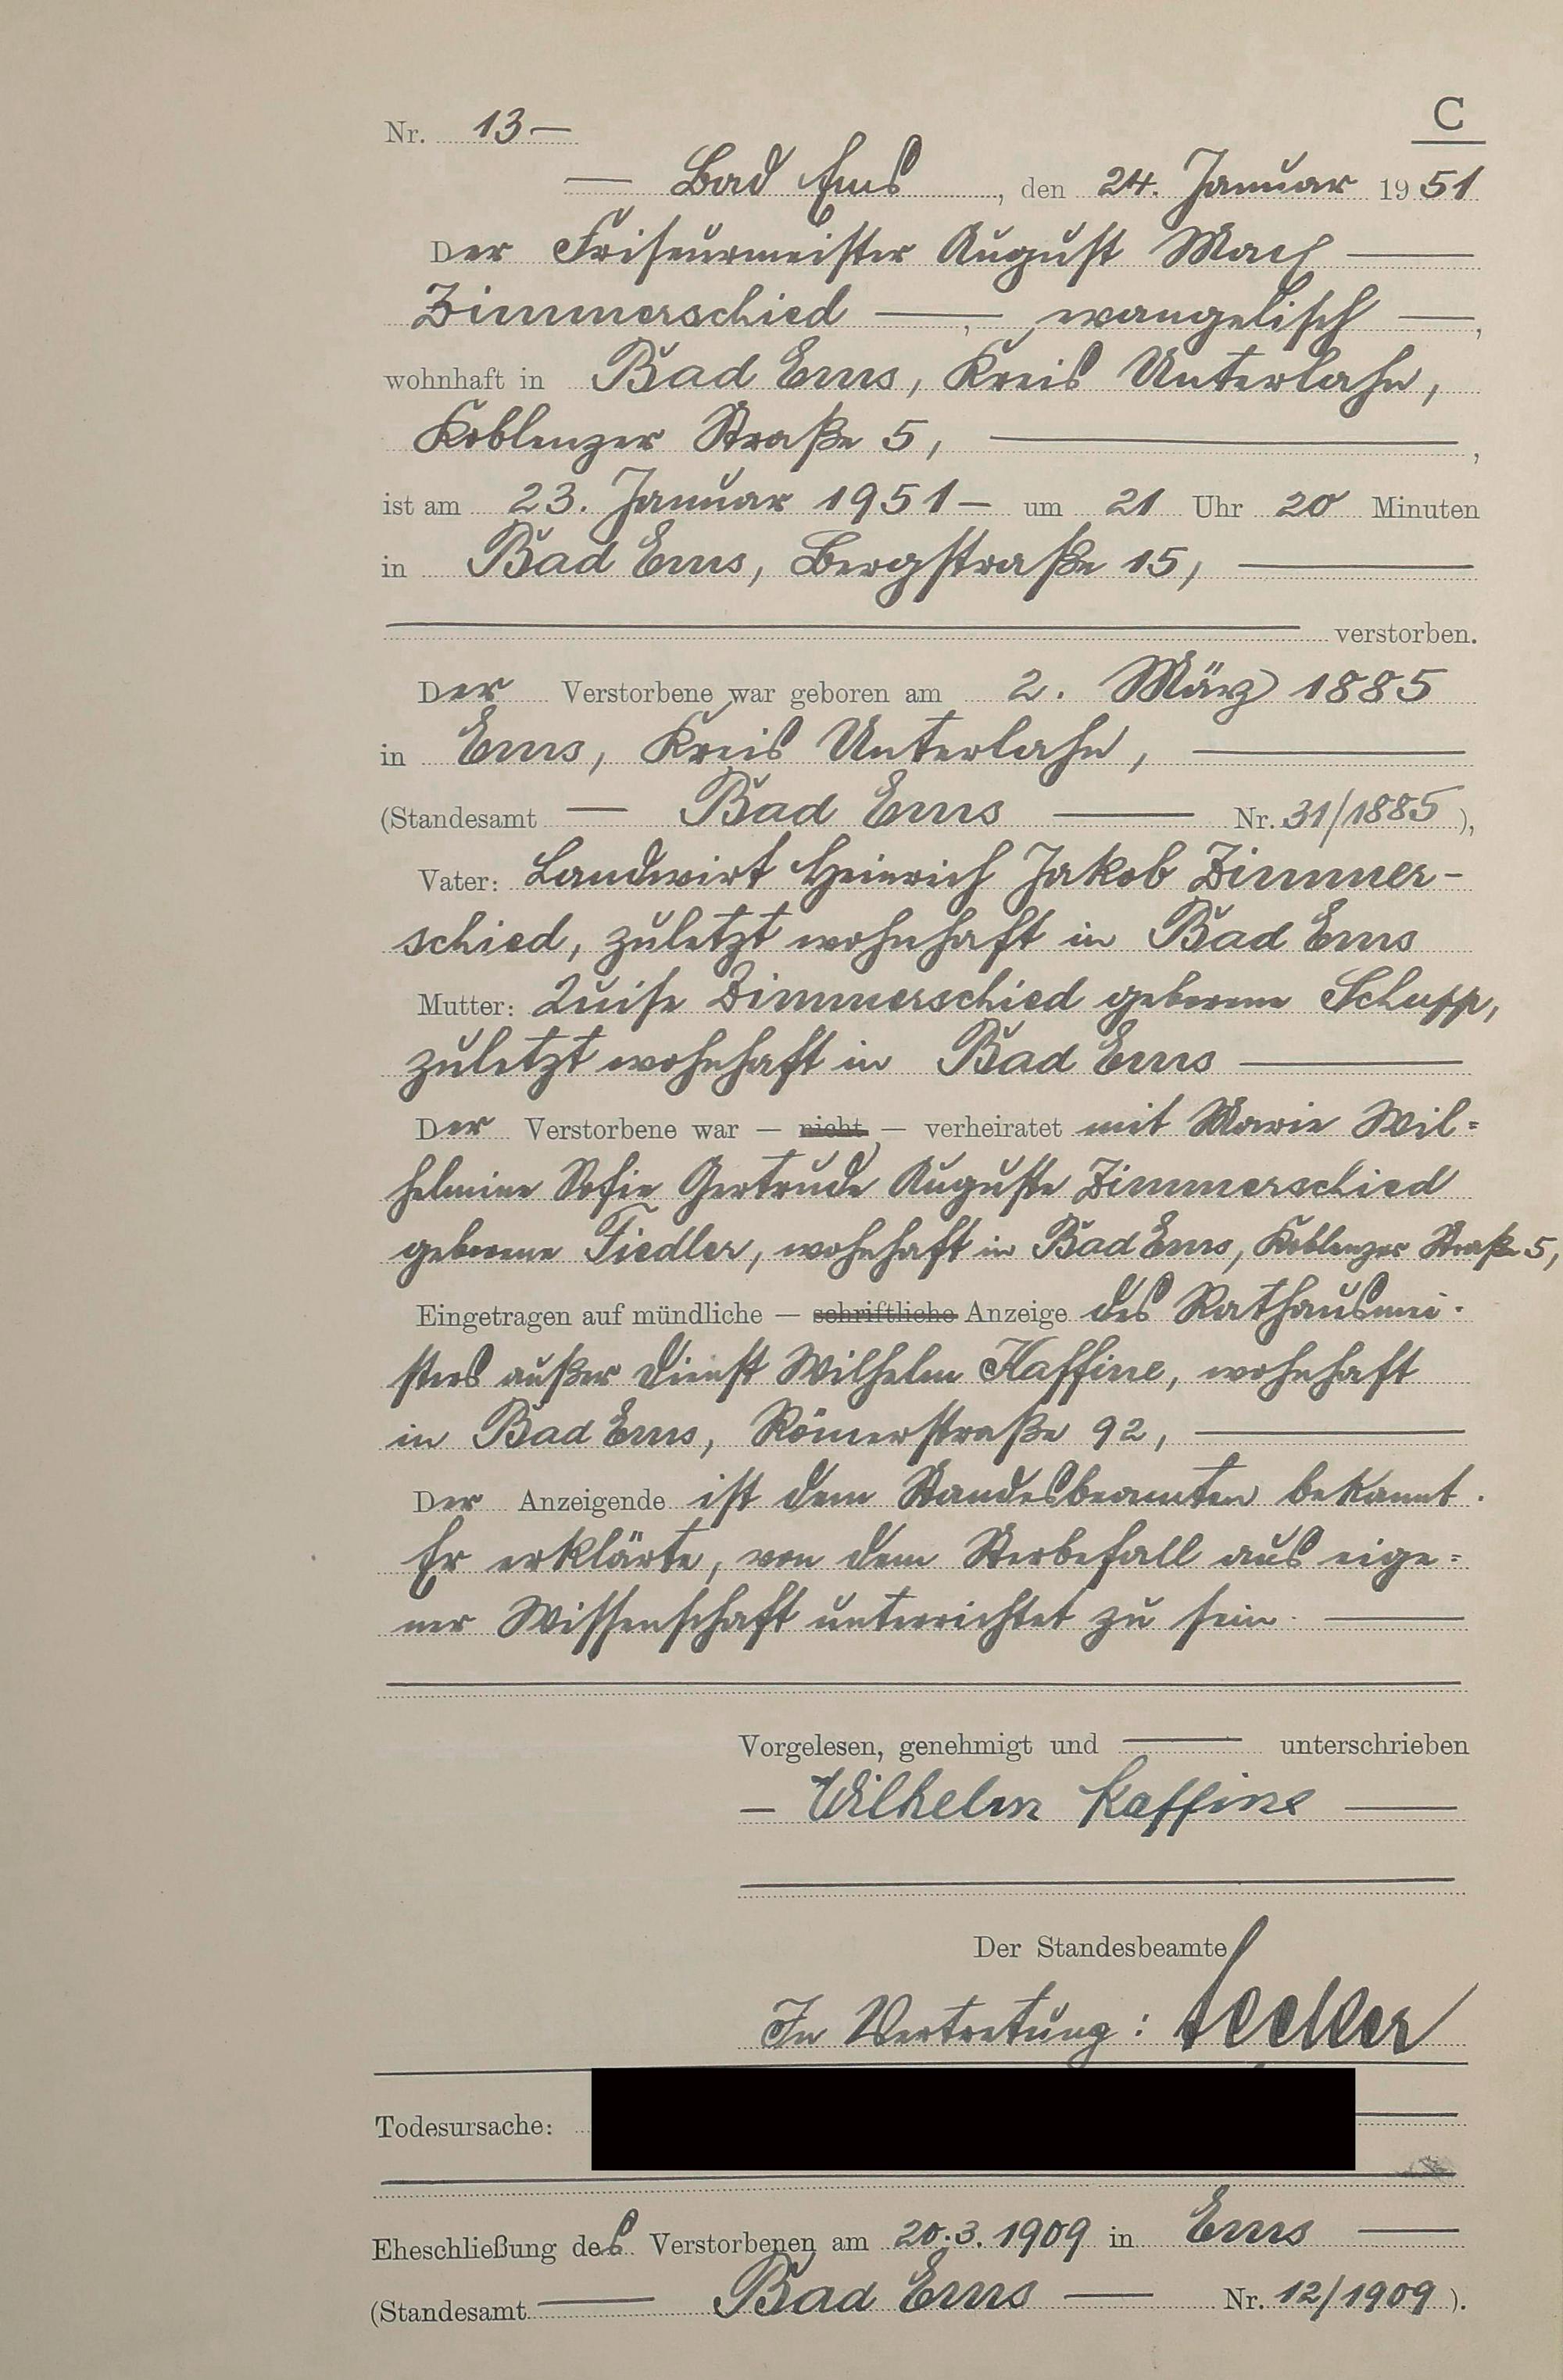 C
Nr. 13 —
— Bad Ems, den 24. Januar 1951
Der Friseurmeister August
Zimmerschied —, evangelisch —,
wohnhaft in Bad Ems, Kreis Unterlahn,
Koblenzer Straße 5, —,
ist am 23. Januar 1951 — um 21 Uhr 20 Minuten
in Bad Ems, Bergstraße 15, —
— verstorben.
Der Verstorbene war geboren am 2. März 1885
in Ems, Kreis Unterlahn, —
(Standesamt — Bad Ems — Nr. 31/1885),
Vater: Landwirt Heinrich Jakob Zimmer-
schied, zuletzt wohnhaft in Bad Ems
Mutter: Luise Zimmerschied geborene Schupp,
zuletzt wohnhaft in Bad Ems —
Der Verstorbene war — nicht — verheiratet mit Marie Wil=
helmine Sofie Gertrude Auguste Zimmerschied
geborene Fiedler, wohnhaft in Bad Ems, Koblenzer Straße 5,
Eingetragen auf mündliche — schriftliche Anzeige des Rathausmei-
sters außer Dienst Wilhelm Kaffine, wohnhaft
in Bad Ems, Römerstraße 92, —
Der Anzeigende ist dem Standesbeamten bekannt.
Er erklärte, von dem Sterbefall aus eige=
ner Wissenschaft unterrichtet zu sein. —
Vorgelesen, genehmigt und — unterschrieben
— Wilhelm Kaffine —
Der Standesbeamte
In Vertretung:
Todesursache:
Eheschließung des Verstorbenen am 20.3.1909 in Ems —
(Standesamt — Bad Ems — Nr. 12/1909).